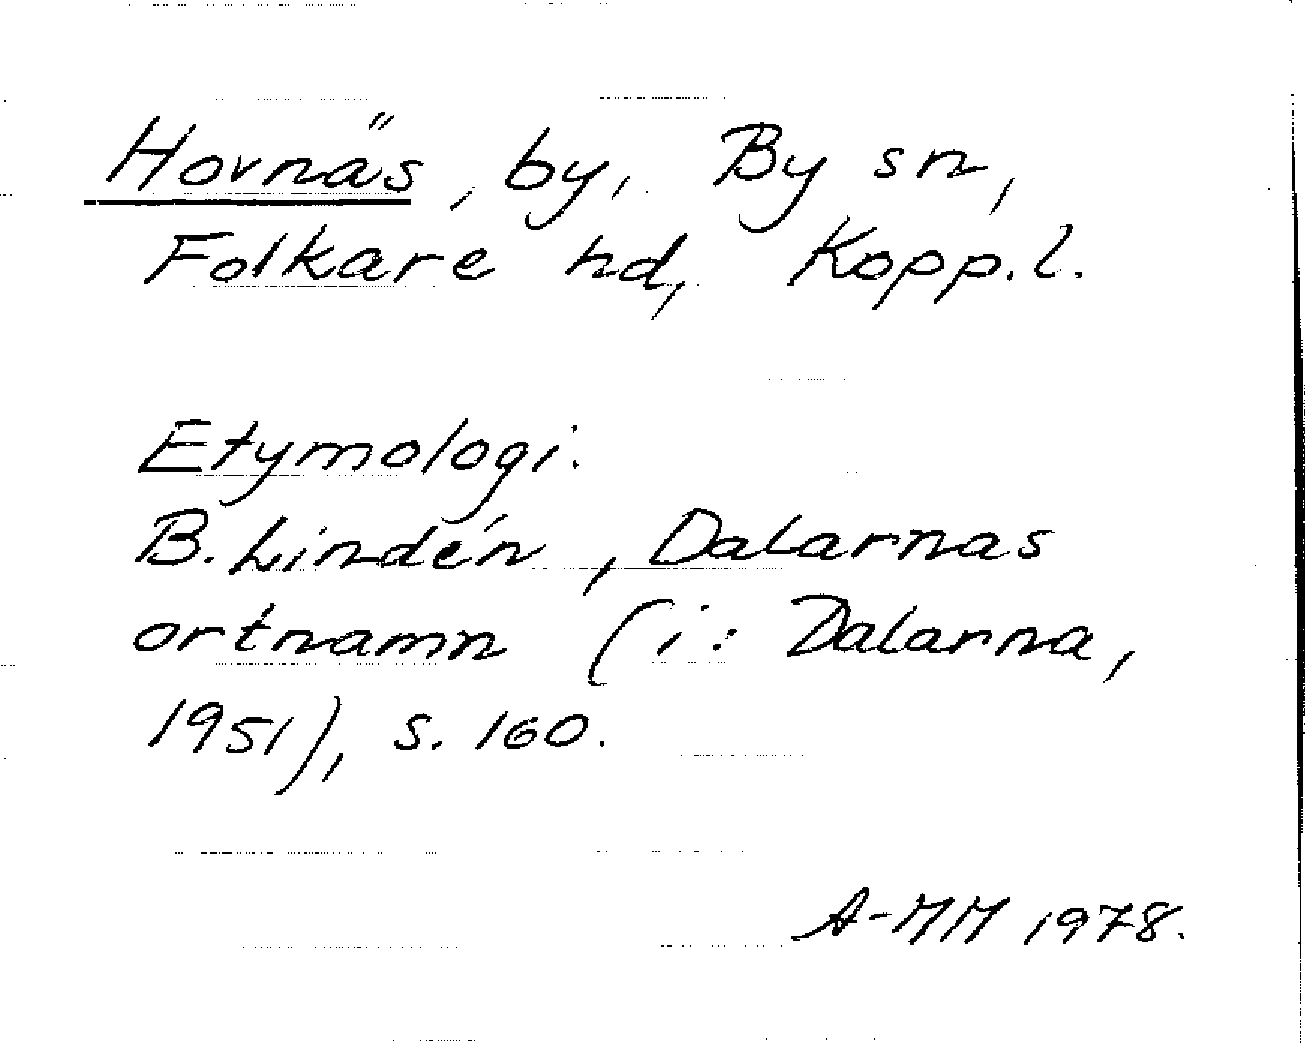 Hovnäs, by, By sn,
Folkare hd, Kopp.l.
Etymologi:
B. Lindén, Dalarnas
ortnamn (i: Dalarna,
1951), s. 160.
A-MM 1978.